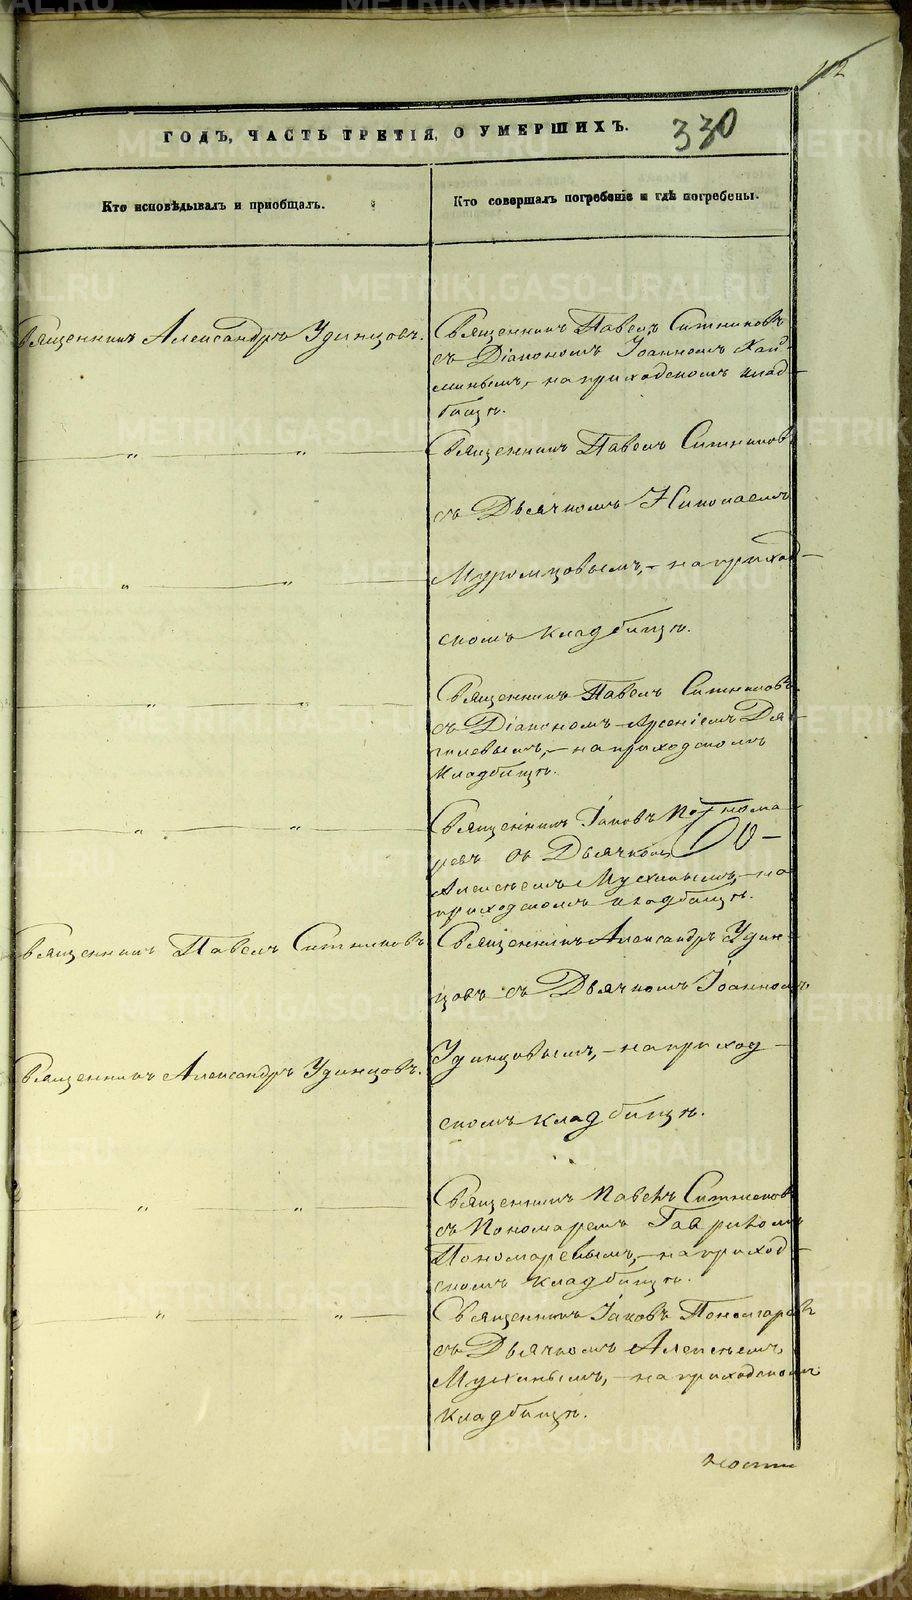 112
ГОДЪ, ЧАСТЬ ТРЕТІЯ, О УМЕРШИХЪ.
330
Кто исповѣдывалъ и приобщалъ.
Кто совершалъ погребеніе и гдѣ погребены.
Священникъ Александръ Удинцовъ.
Священникъ Павелъ Ситниковъ
съ Діакономъ Іоанномъ
на приходскомъ клад-
бищѣ.
„ „
Священникъ Павелъ Ситниковъ
съ Дьячкомъ Николаемъ
„ „
Муромцовымъ, - на приход-
скомъ кладбищѣ.
„ „
Священникъ Павелъ Ситниковъ
съ Діакономъ Арсеніемъ Дя-
гилевымъ, - на приходскомъ
кладбищѣ.
„ „
Священникъ Іаковъ Понома-
ревъ съ Дьячкомъ
Алексѣемъ Мухинымъ, - на
приходскомъ кладбищѣ.
Священникъ Павелъ Ситниковъ
Священникъ Александръ Удин-
цовъ съ Дьячкомъ Іоанномъ
Священникъ Александръ Удинцовъ.
Удинцовымъ, - на приход-
скомъ кладбищѣ.
„ „
Священникъ Павелъ Ситниковъ
съ Пономаремъ Гавриломъ
Пономаревымъ, - на приход-
скомъ кладбищѣ.
„ „
Священникъ Іаковъ Пономаревъ
съ Дьячкомъ Алексѣемъ
Мухинымъ, - на приходскомъ
кладбищѣ.
METRIKI.GASO-URAL.RU